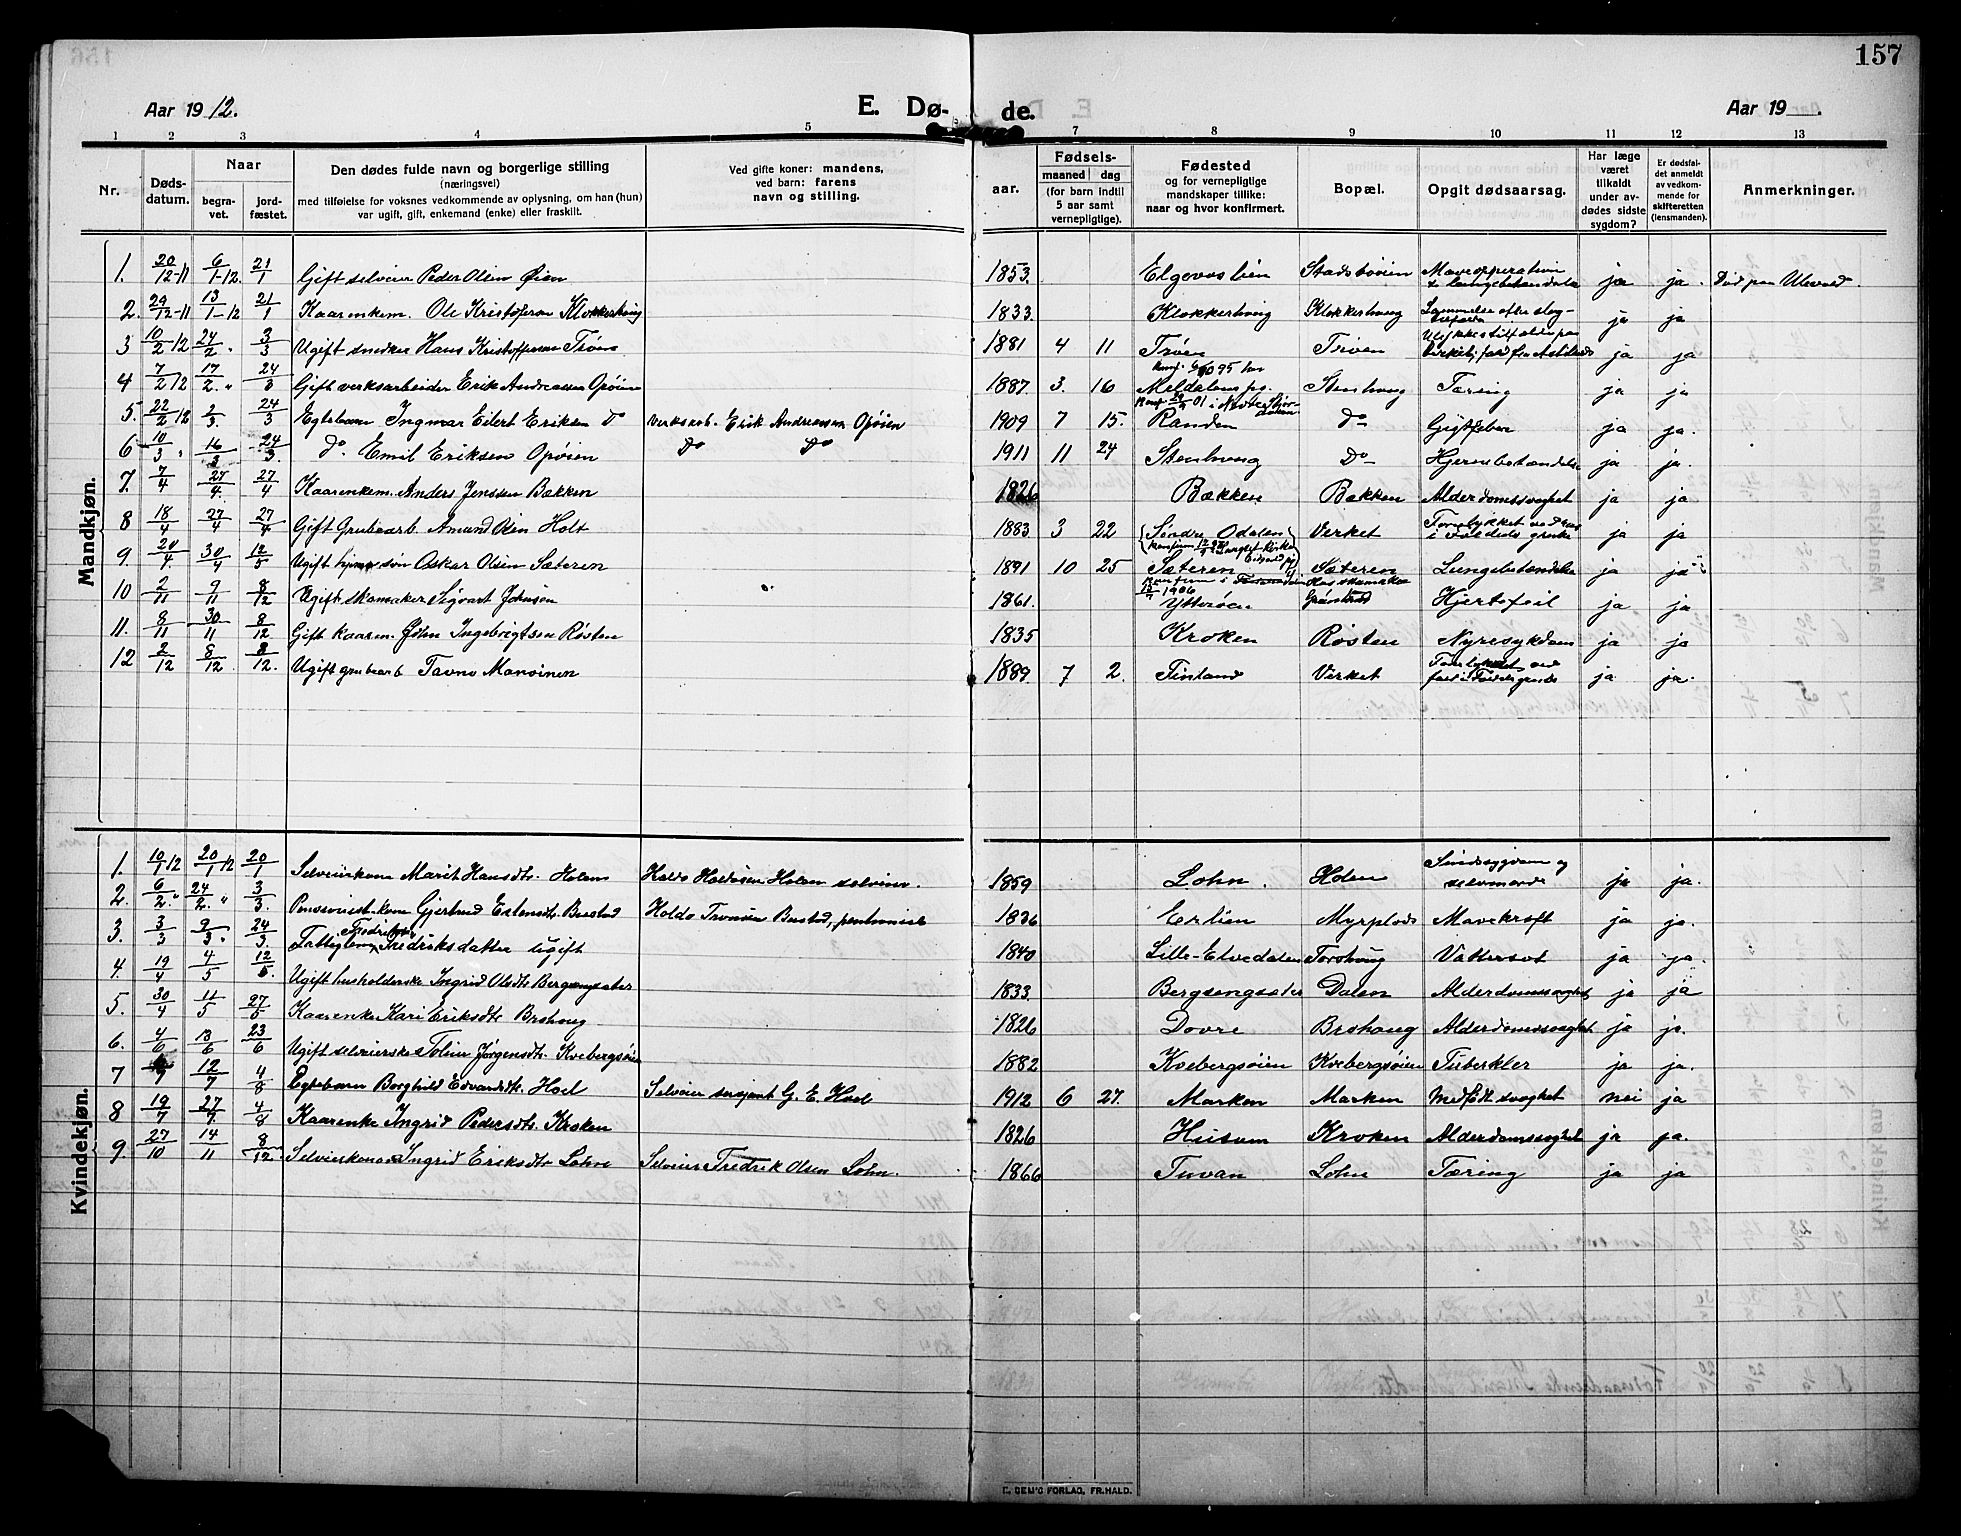 157
Aar 1912.
E. Dø-
de.
Aar 19
1 2 3 4 5 7 8 9 10 11 12 13
Nr.
Døds-
datum.
Naar
begra-
vet.
jord-
fæstet.
Den dødes fulde navn og borgerlige stilling
(næringsvei)
med tilføielse for voksnes vedkommende av oplysning, om han (hun)
var ugift, gift, enkemand (enke) eller fraskilt.
Ved gifte koner: mandens,
ved barn: farens
navn og stilling.
aar.
Fødsels-
maaned dag
(for barn indtil
5 aar samt
vernepligtige).
Fødested
og for vernepligtige
mandskaper tillike:
naar og hvor konfirmert.
Bopæl.
Opgit dødsaarsag.
Har læge
været
tilkaldt
under av-
dødes sidste
sygdom?
Er dødsfal-
det anmeldt
av vedkom-
mende for
skifteretten
(lensmanden).
Anmerkninger.
Mandkjøn.
1. 20/12-11 6/1-12. 21/1 Gift selveier Peder Olsen Øien 1853. Stadsbøien ja ja. Død paa Ulevold.
2. 29/12-11 13/1-12 21/1 Kaarenkem. Ole Kristofersen Klokkerhaug 1833. Klokkerhaug Klokkerhaug ja ja
3 10/2 12 24/2 " 3/3 Ugift snedker Hans Kristoffersen Trøen 1881 4 11 Trøen Trøen ja ja
4 7/2 12 17/2. " 24/3 Gift verksarbeider Erik Andreassen Opøien 1887. 3. 16 Meldalens pg. Stenhaug Tæring ja ja
5. 22/2 12 2/3. 24/3 Egtebarn Ingmar Eilert Eriksen do verksarb. Erik Andreassen Opøien 1909 7 15. Randen Do Gigtfeber ja ja.
6 10/3 " 16/3 24/3. do. Emil Eriksen Opøien do do 1911 11 24 Stenhaug Do Hjernebetændelse ja ja.
7. 7/4 27/4. 27/4 Kaarenkem. Anders Jenssen Bækken 1826 Bækken Bækken Alderdomssvaghet ja ja
8 18/4 27/4 27/4 Gift Grubearb. Amund Olsen Holt 1883 3 22 Søndre Odalen Virket ja ja
9. 20/4 30/4 12/5 Ugift søn Oskar Olsen Sæteren 1891 10 25 Sæteren Sæteren Lungebetændelse ja ja
10 2/11 9/11 8/12 Ugift skomaker Sigvart Johnsen 1861. Ytterøen Hjertefeil ja ja
11. 8/11 30/11 8/12 Gift kaarem. John Ingebrigtsen Røsten 1835 Kroken Røsten Nyresykdom ja ja
12 2/12 8/12 8/12. Ugift grubearb Tavno Manoinen 1889. 7 2. Finland Virket ja ja.
Kvindekjøn.
1. 10/1 12 20/1 12 20/1 Selveierkone Marit Hansdtr. Holen Holdo Holdosen Holen selveier. 1859 Lohn. Holen Sindssygdom og selvmord ja ja.
2. 6/2. " 24/2. " 3/3. Pensionist.kone Gjertrud Estensdtr. Bustad Holdo Tronsen Bustad, pensionist 1836 Erlien Myrplads Mavekræft ja ja.
3. 3/3 9/3. 24/3. Fattiglem Fredriksdatter ugift 1840 Lille-Elvedalen Torshaug Vattersot ja ja.
4. 19/4 4/5 12/5. Ugift husholderske Ingrid Olsdtr Bergsengsæter 1833. Bergsengsæter Dalen Alderdomssvaghet ja ja
5. 30/4 11/5 27/5 Kaarenke Kari Eriksdtr Brohaug 1826 Dovre Brohaug Alderdomssvaghet ja ja.
6. 4/6 13/6 23/6 Ugift selveierske Toline Jørgensdtr. Kvebergsøien 1882 Kvebergsøien Kvebergsøien Tuberkler ja ja.
7 12/7 4/8 Egtebarn Borghild Edvardsdtr. Hoel Selveier sersjant G. E. Hoel 1912 6 27. Marken Marken Medfødt svaghet nei ja
8 19/7 27/7. 4/8 Kaarenke Ingrid Pedersdtr. Kroken 1826 Husum Kroken Alderdomssvaghet ja ja.
9 27/10 14/11 8/12. Selveierkone Ingrid Eriksdtr Lohn Selveier Fredrik Olsen Lohn. 1866 Tuvan Lohn Tæring ja ja
FORLAG, FR.HALD.